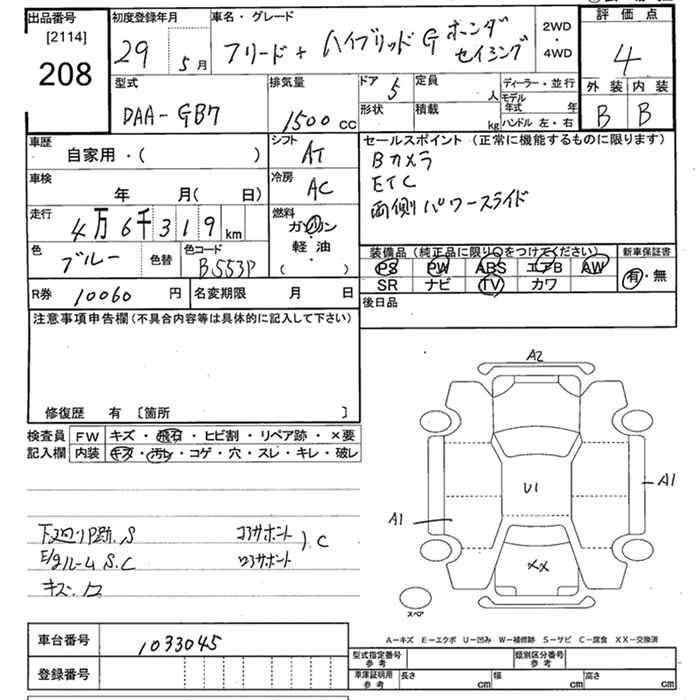 出品番号
[2114]
208
初度登録年月
29 5月
車名・グレード
フリード+ ハイブリッドG ホンダ
センシング
2WD
・
4WD
評価点
4
外装 内装
B B
型式
DAA-GB7
排気量
1500 cc
ドア 5
定員 人
形状
積載 kg
ディーラー・並行
モデル年式 年
ハンドル 左・右
車歴
自家用・( )
シフト
AT
車検
年 月( 日)
冷房
AC
走行
4万6千319km
燃料
ガソリン
軽油
( )
色
ブルー
色替
色コード
B553P
R券 10060 円
名変期限 月 日
セールスポイント (正常に機能するものに限ります)
Bカメラ
ETC
両側パワースライド
装備品(純正品に限り○をつけてください)
PS PW ABS エアB AW
SR ナビ TV カワ
新車保証書
有・無
後日品
注意事項申告欄(不具合内容等は具体的に記入して下さい)
修復歴 有 [箇所 ]
検査員
記入欄
FW キズ・飛石・ヒビ割・リペア跡・×要
内装 キズ・汚レ・コゲ・穴・スレ・キレ・破レ
S
E/gルーム S.C
コアサポート
ロアサポート
) C
A2
U1
A1
A1
XX
スペア
A-キズ E-エクボ U-凹み W-補修跡 S-サビ C-腐食 XX-交換済
車台番号 1033045
登録番号
型式指定番号
参考
類別区分番号
参考
車庫証明用
参考
長さ cm 幅 cm 高さ cm